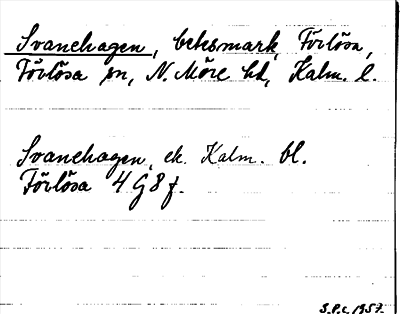 Svanehagen, betesmark, Förlösa,
Förlösa sn, N. Möre hd, Kalm. l.
Svanehagen, ek. Kalm. bl.
Förlösa 4 G 8 f.
S.P.C. 1957.